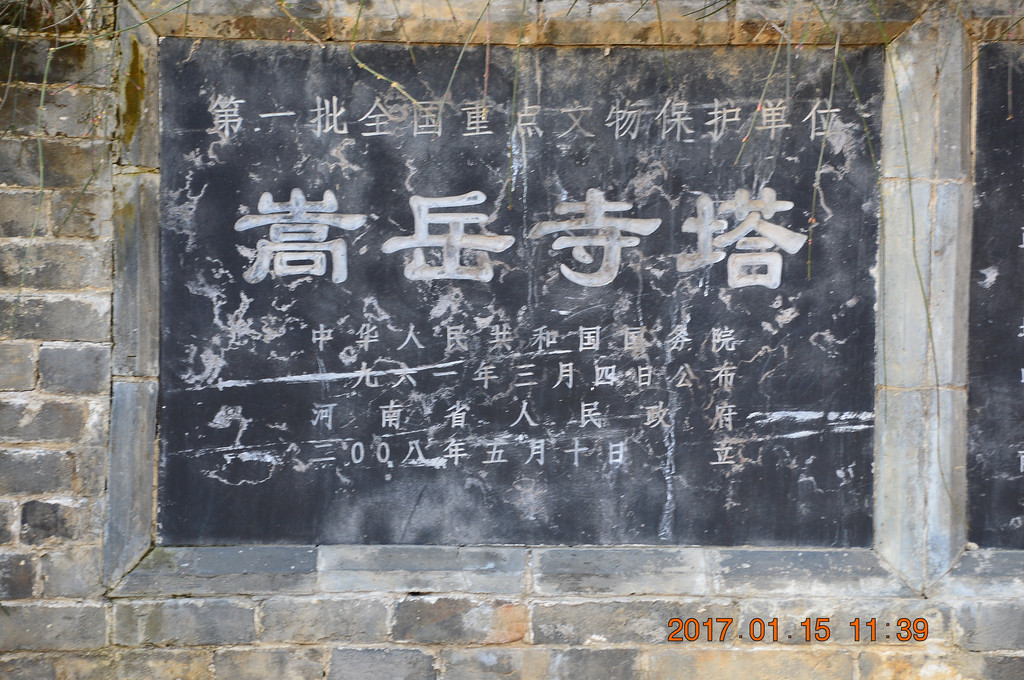 第一批全国重点文物保护单位
嵩岳寺塔
中华人民共和国国务院
一九六一年三月四日公布
河南省人民政府
二00八年五月十日 立
2017.01.15 11:39